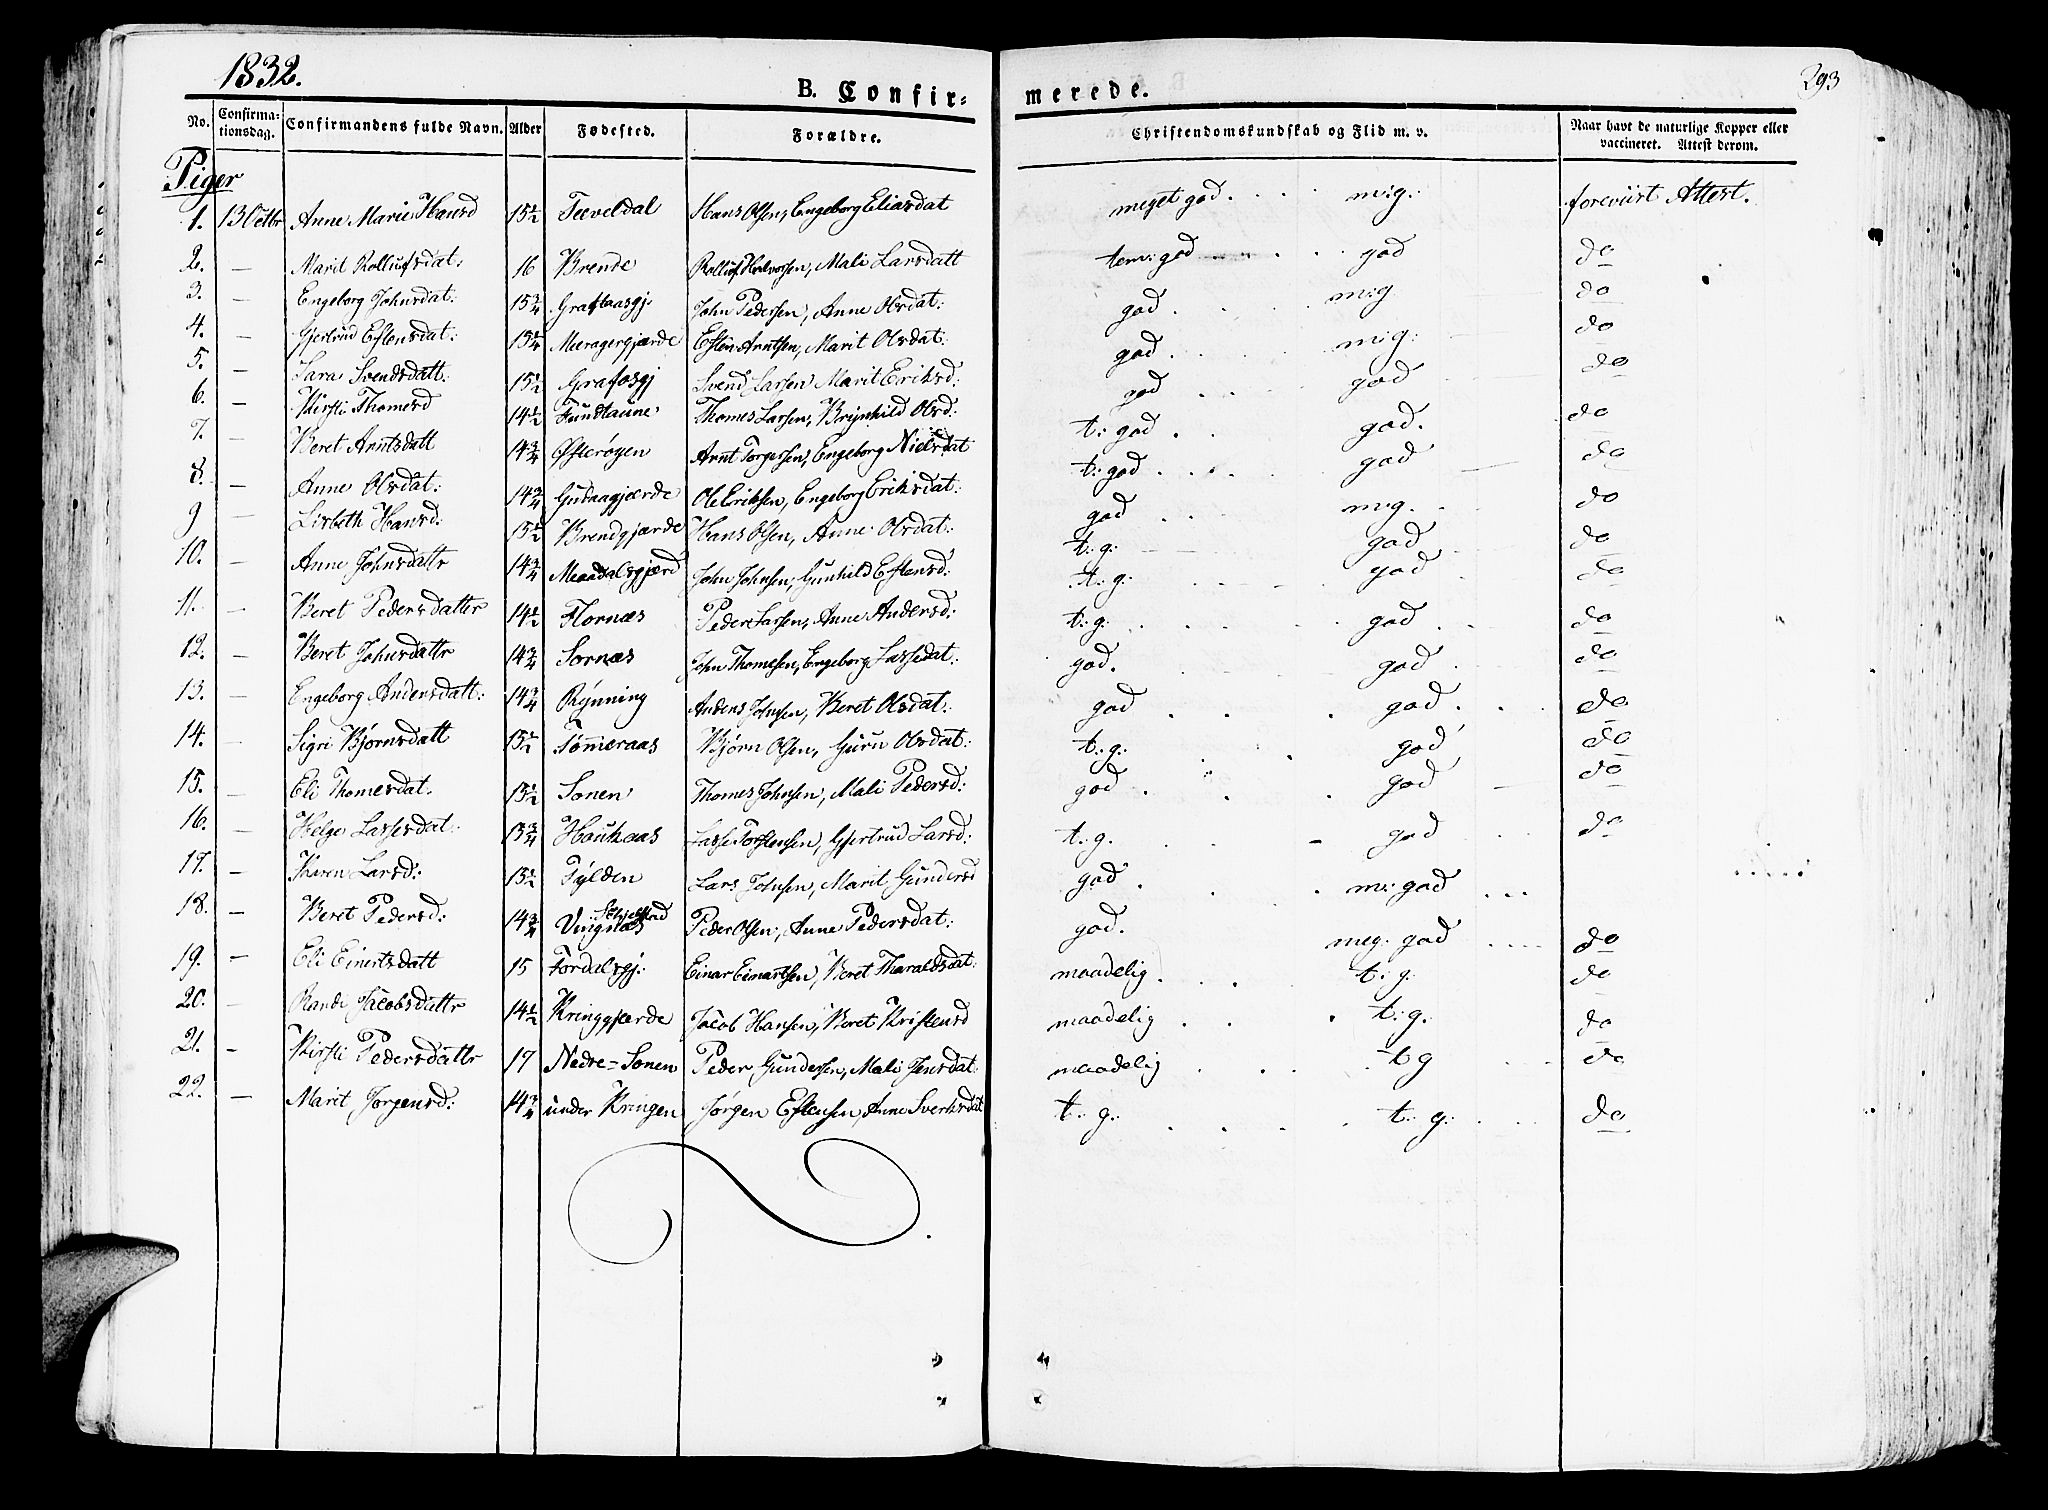 1832.
B. Confir=
merede.
293
No. Confirma=tionsdag. Confirmandens fulde Navn. Alder Fødested. Forældre. Christendomskundskab og Flid m. v. Naar havt de naturlige Kopper eller vaccineret. Attest derom.
Piger
1. 13 Octbr Anne Marie Hansd 15½ Teveldal Hans Olsen, Engeborg Eliasdat meget god. m:g: foreviist Attest.
2. — Marit Rollufsdat: 16 Brende Rolluf Halvorsen, Mali Larsdatt tem: god god do
3. — Engeborg Johnsdat: 15¾ John Pedersen, Anne Olsdat: god m:g do
4. — Gjertrud Estensdat: Meeragergjærde Esten Arntsen, Marit Olsdat: god. m:g: do
5. — Sara Svendsdatt: 15½ Grafosgj Svend Larsen Marit Eriksd: god god do
6. — Kirsti Thomesd 14½ Fundtaune Thomes Larsen, Brynhild Olsd: t: god god. do
7. — Beret Arntsdatt 14¾ Østerøyen Arnt Torgersen, Engeborg Nielsdat t: god god do
8. — Anne Olsdat: 14¾ Gudaagjærde Ole Eriksen, Engeborg Eriksdat: god m:g. do
9 — Lisbeth Hansd: 15½ Brendgjærde Hans Olsen, Anne Olsdat: t: g: god do
10. — Anne Johnsdattr 14¾ Meandalsgjærd John Johnsen, Gunhild Estensd: t: g: god do
11. — Beret Pedersdatter 14½ Flornæs Peder Larsen, Anne Andersd: t: g: god do
12. — Beret Johnsdattr 14¾ Sornæs John Thomesen, Engeborg Lassedat: god. god do
13. — Engeborg Andersdatt: 14¾ Rýnning Anders Johnsen, Beret Olsdat: god god. do
14. — Sigri Bjørnsdatt 15½ Tømmeraas Bjørn Olsen, Guru Olsdat: t: g: god do
15. — Eli Thomesdat. 15½ Sonen Thomes Johnsen, Mali Pedersd: god god do
16. — Helge Lassesdat: 15¾ Haukaas Lasse Torstensen, Gjertrud Larsd: t: g. god do
17. — Karen Larsd: 15½ Fýlden Lars Johnsen, Marit Gundersd god m: god
18. — Beret Pedersd: 14¾ Schjelstad Vingnæs Peder Olsen, Anne Pedersdat: god. meg. god do
19. — Eli Einertsdatt 15 Fordalsgj: Einar Einartsen, Beret Tharaldsdat: maadelig. t: g. do
20. — Randi Jacobsdattr 14½ Kringgjærde Jacob Hansen, Beret Kristensd maadelig t: g. do
21. — Kirsti Pedersdattr 17 Nedre=Sonen Peder Gundersen, Mali Jensdat: maadelig t g do
22. — Marit Jørgensd: 14¾ under Kringen Jørgen Estensen, Anne Sverksdat t: g: t: g: do